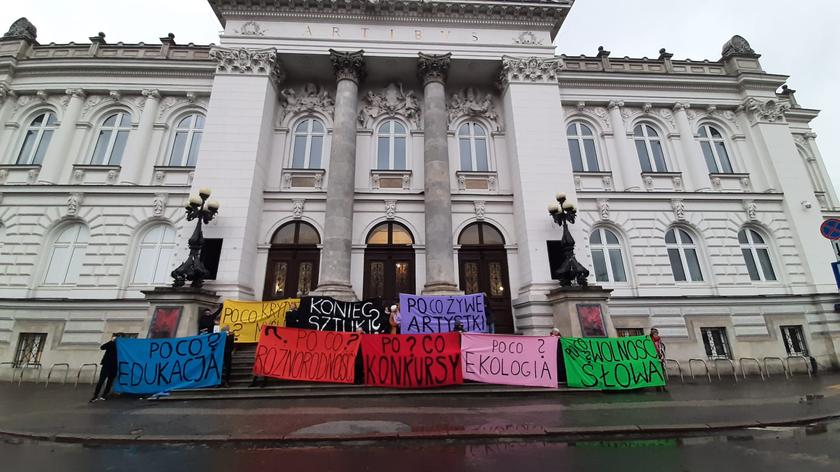 ARTIBUS
PO CO KRYTY
? MYŚ
KONIEC
SZTUKI
PO CO ŻYWE
ARTYSTKI
PO CO ?
EDUKACJA
PO CO ?
RÓŻNORODNOŚĆ
PO ? CO
KONKURSY
PO CO ?
EKOLOGIA
PO CO ? WOLNOŚĆ
SŁOWA